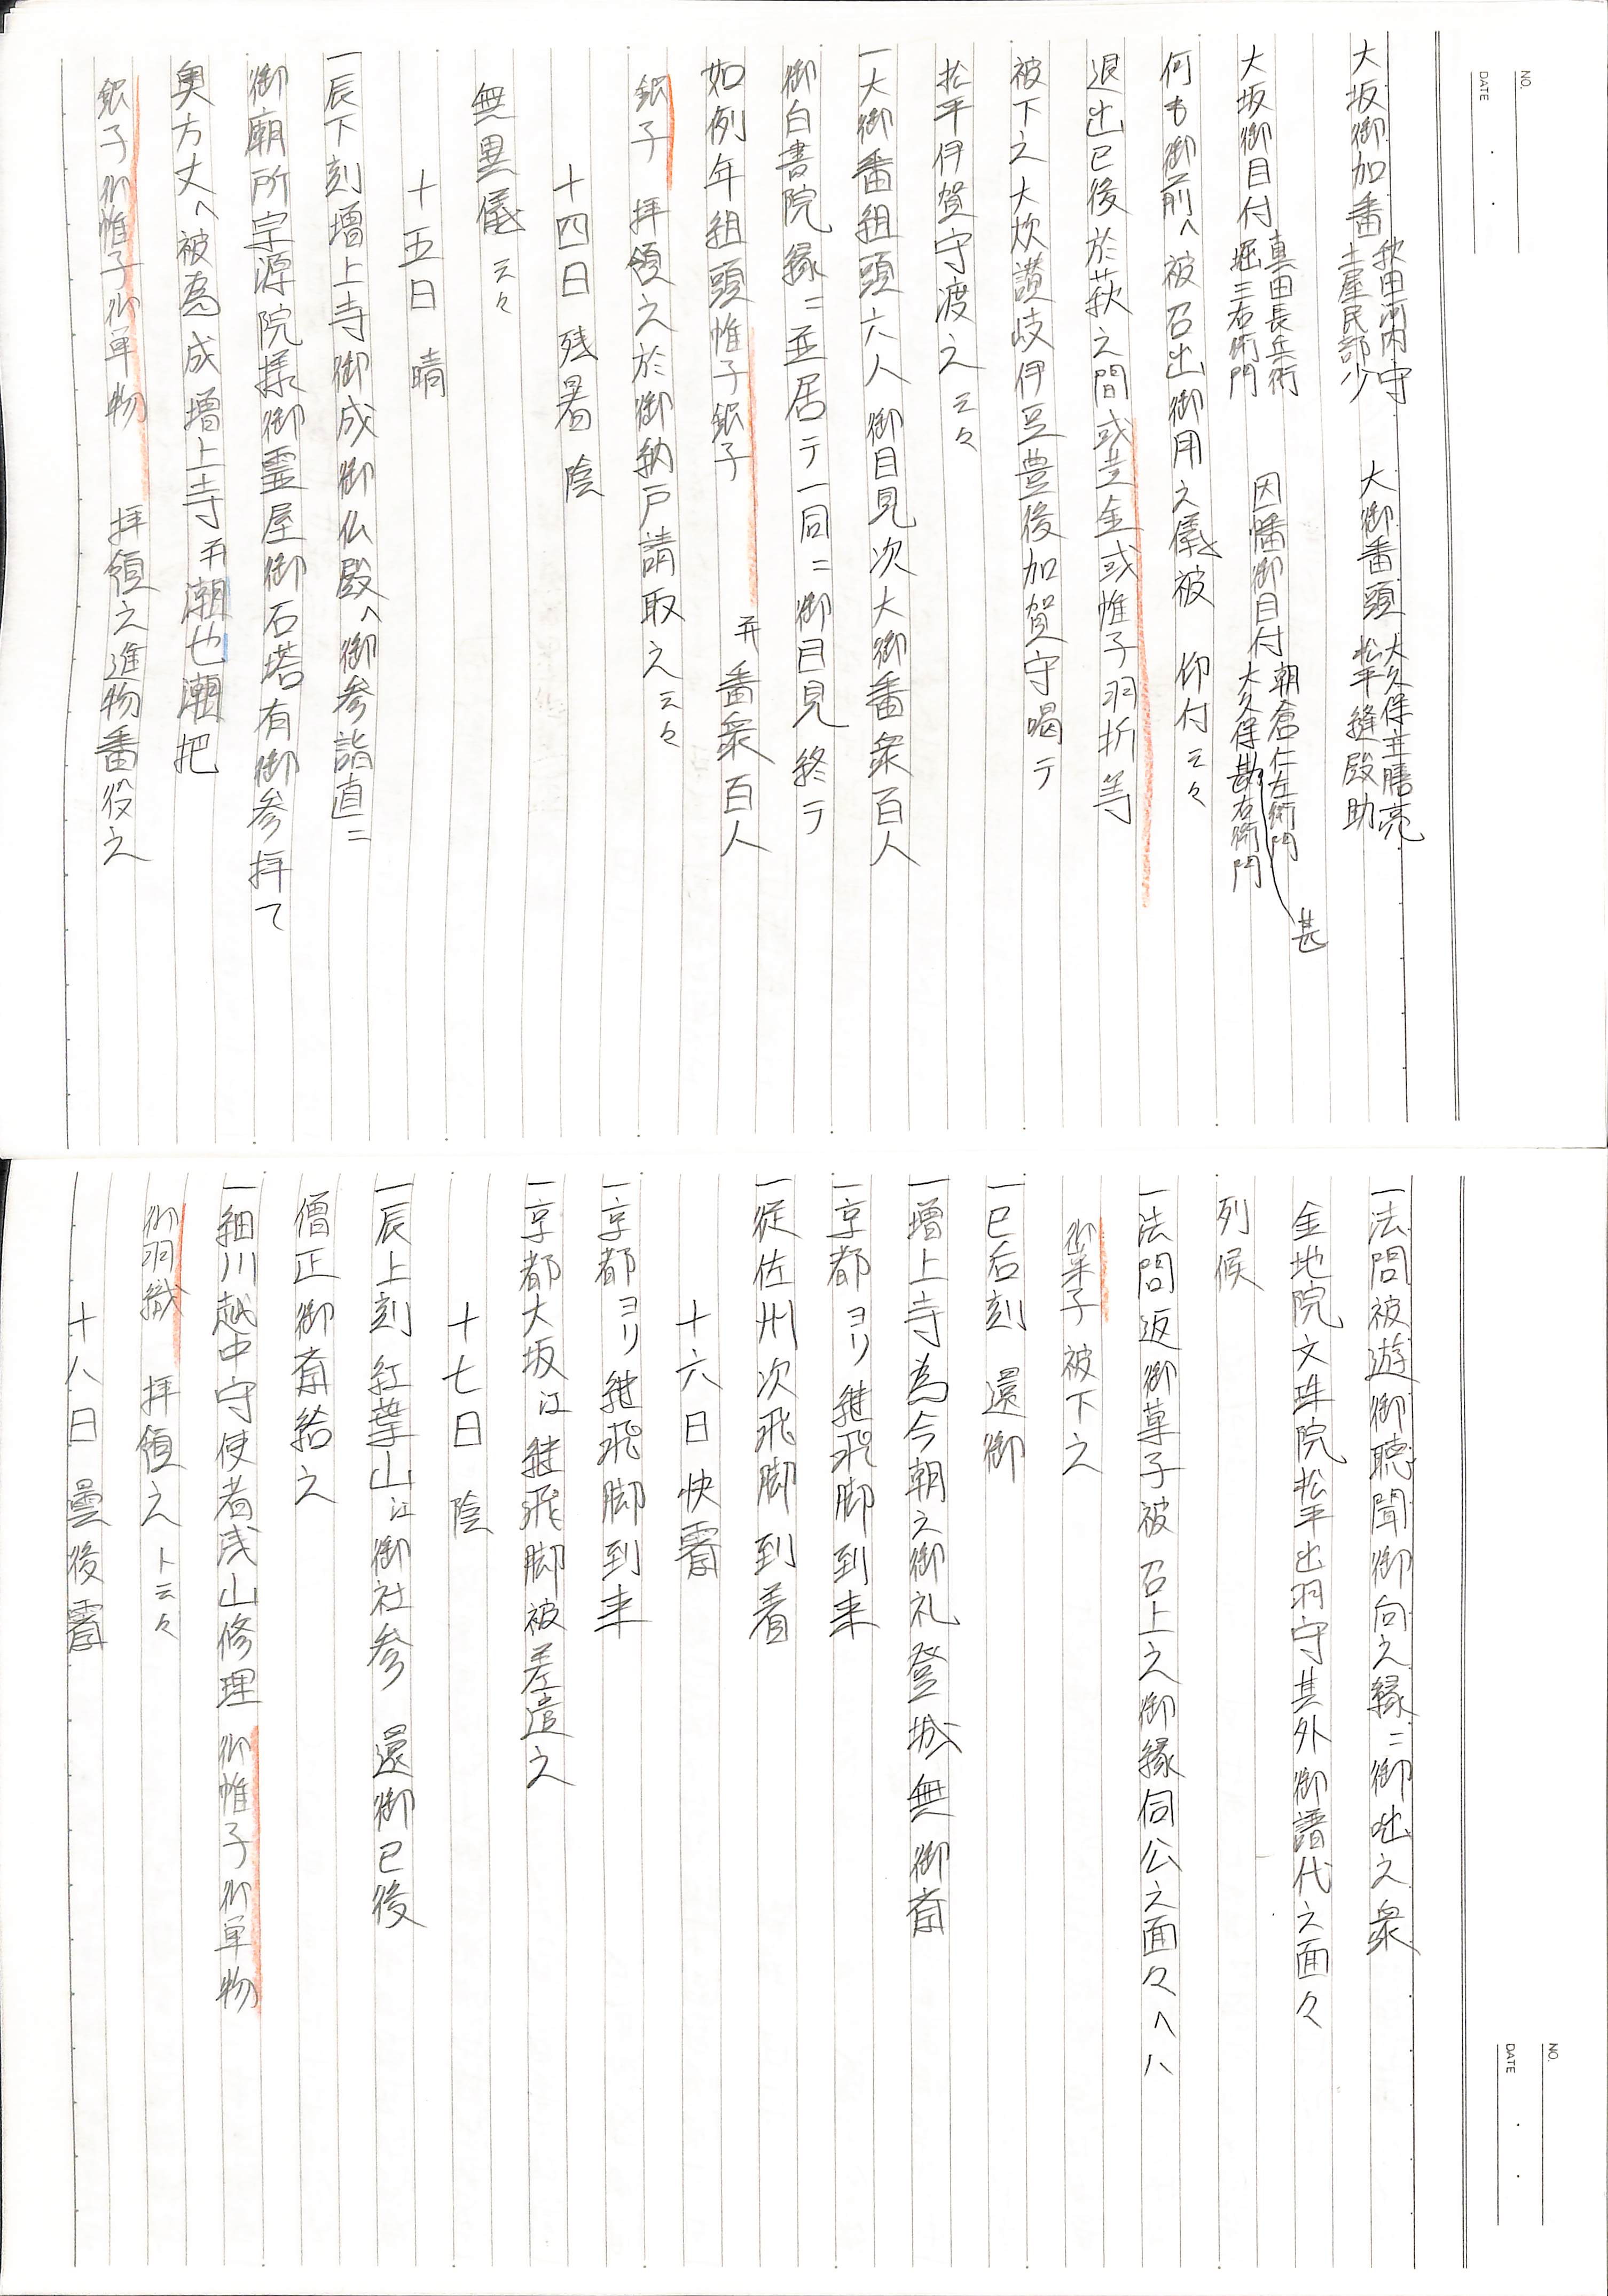 NO.
DATE
大坂御加番 秋田河内守 土屋民部少 大御番頭 大久保主膳亮 松平縫殿助
大坂御目付 真田長兵衛 堀三右衛門 因幡御目付 朝倉仁左衛門 大久保勘右衛門
甚
何も御前へ被召出御用之儀被 仰付云々
退出已後於萩之間或黄金或帷子羽折等
被下之大炊讃岐伊豆豊後加賀守喝テ
松平伊賀守渡之 云々
一大御番組頭六人 御目見次大御番衆百人
御白書院縁ニ並居テ一同ニ御目見終テ
如例年組頭帷子銀子 并番衆百人
銀子 拝領之於御納戸請取之云々
十四日 残暑 陰
無異儀 云々
十五日 晴
一辰下刻増上寺御成御仏殿へ御参詣直ニ
御廟所宗源院様御霊屋御石塔有御参拝て
奥方丈へ被為成増上寺并潮也潮把
銀子御帷子御単物 拝領之進物番役之
NO.
DATE
一法問被遊御聴聞御向之縁ニ御咄之衆
金地院文珠院松平出羽守其外御譜代之面々
列候
一法問返御菓子被 召上之御縁伺公之面々へハ
御菓子被下之
一巳后刻 還御
一増上寺為今朝之御礼登城無御斎
一京都ヨリ継飛脚到来
一従佐州次飛脚到着
十六日 快霽
一京都ヨリ継飛脚到来
一京都大坂江継飛脚被差遣之
十七日 陰
一辰上刻 紅葉山江御社参 還御已後
僧正御斎給之
一細川越中守使者浅山修理 御帷子御単物
御羽織 拝領之ト云々
十八日 曇後霽